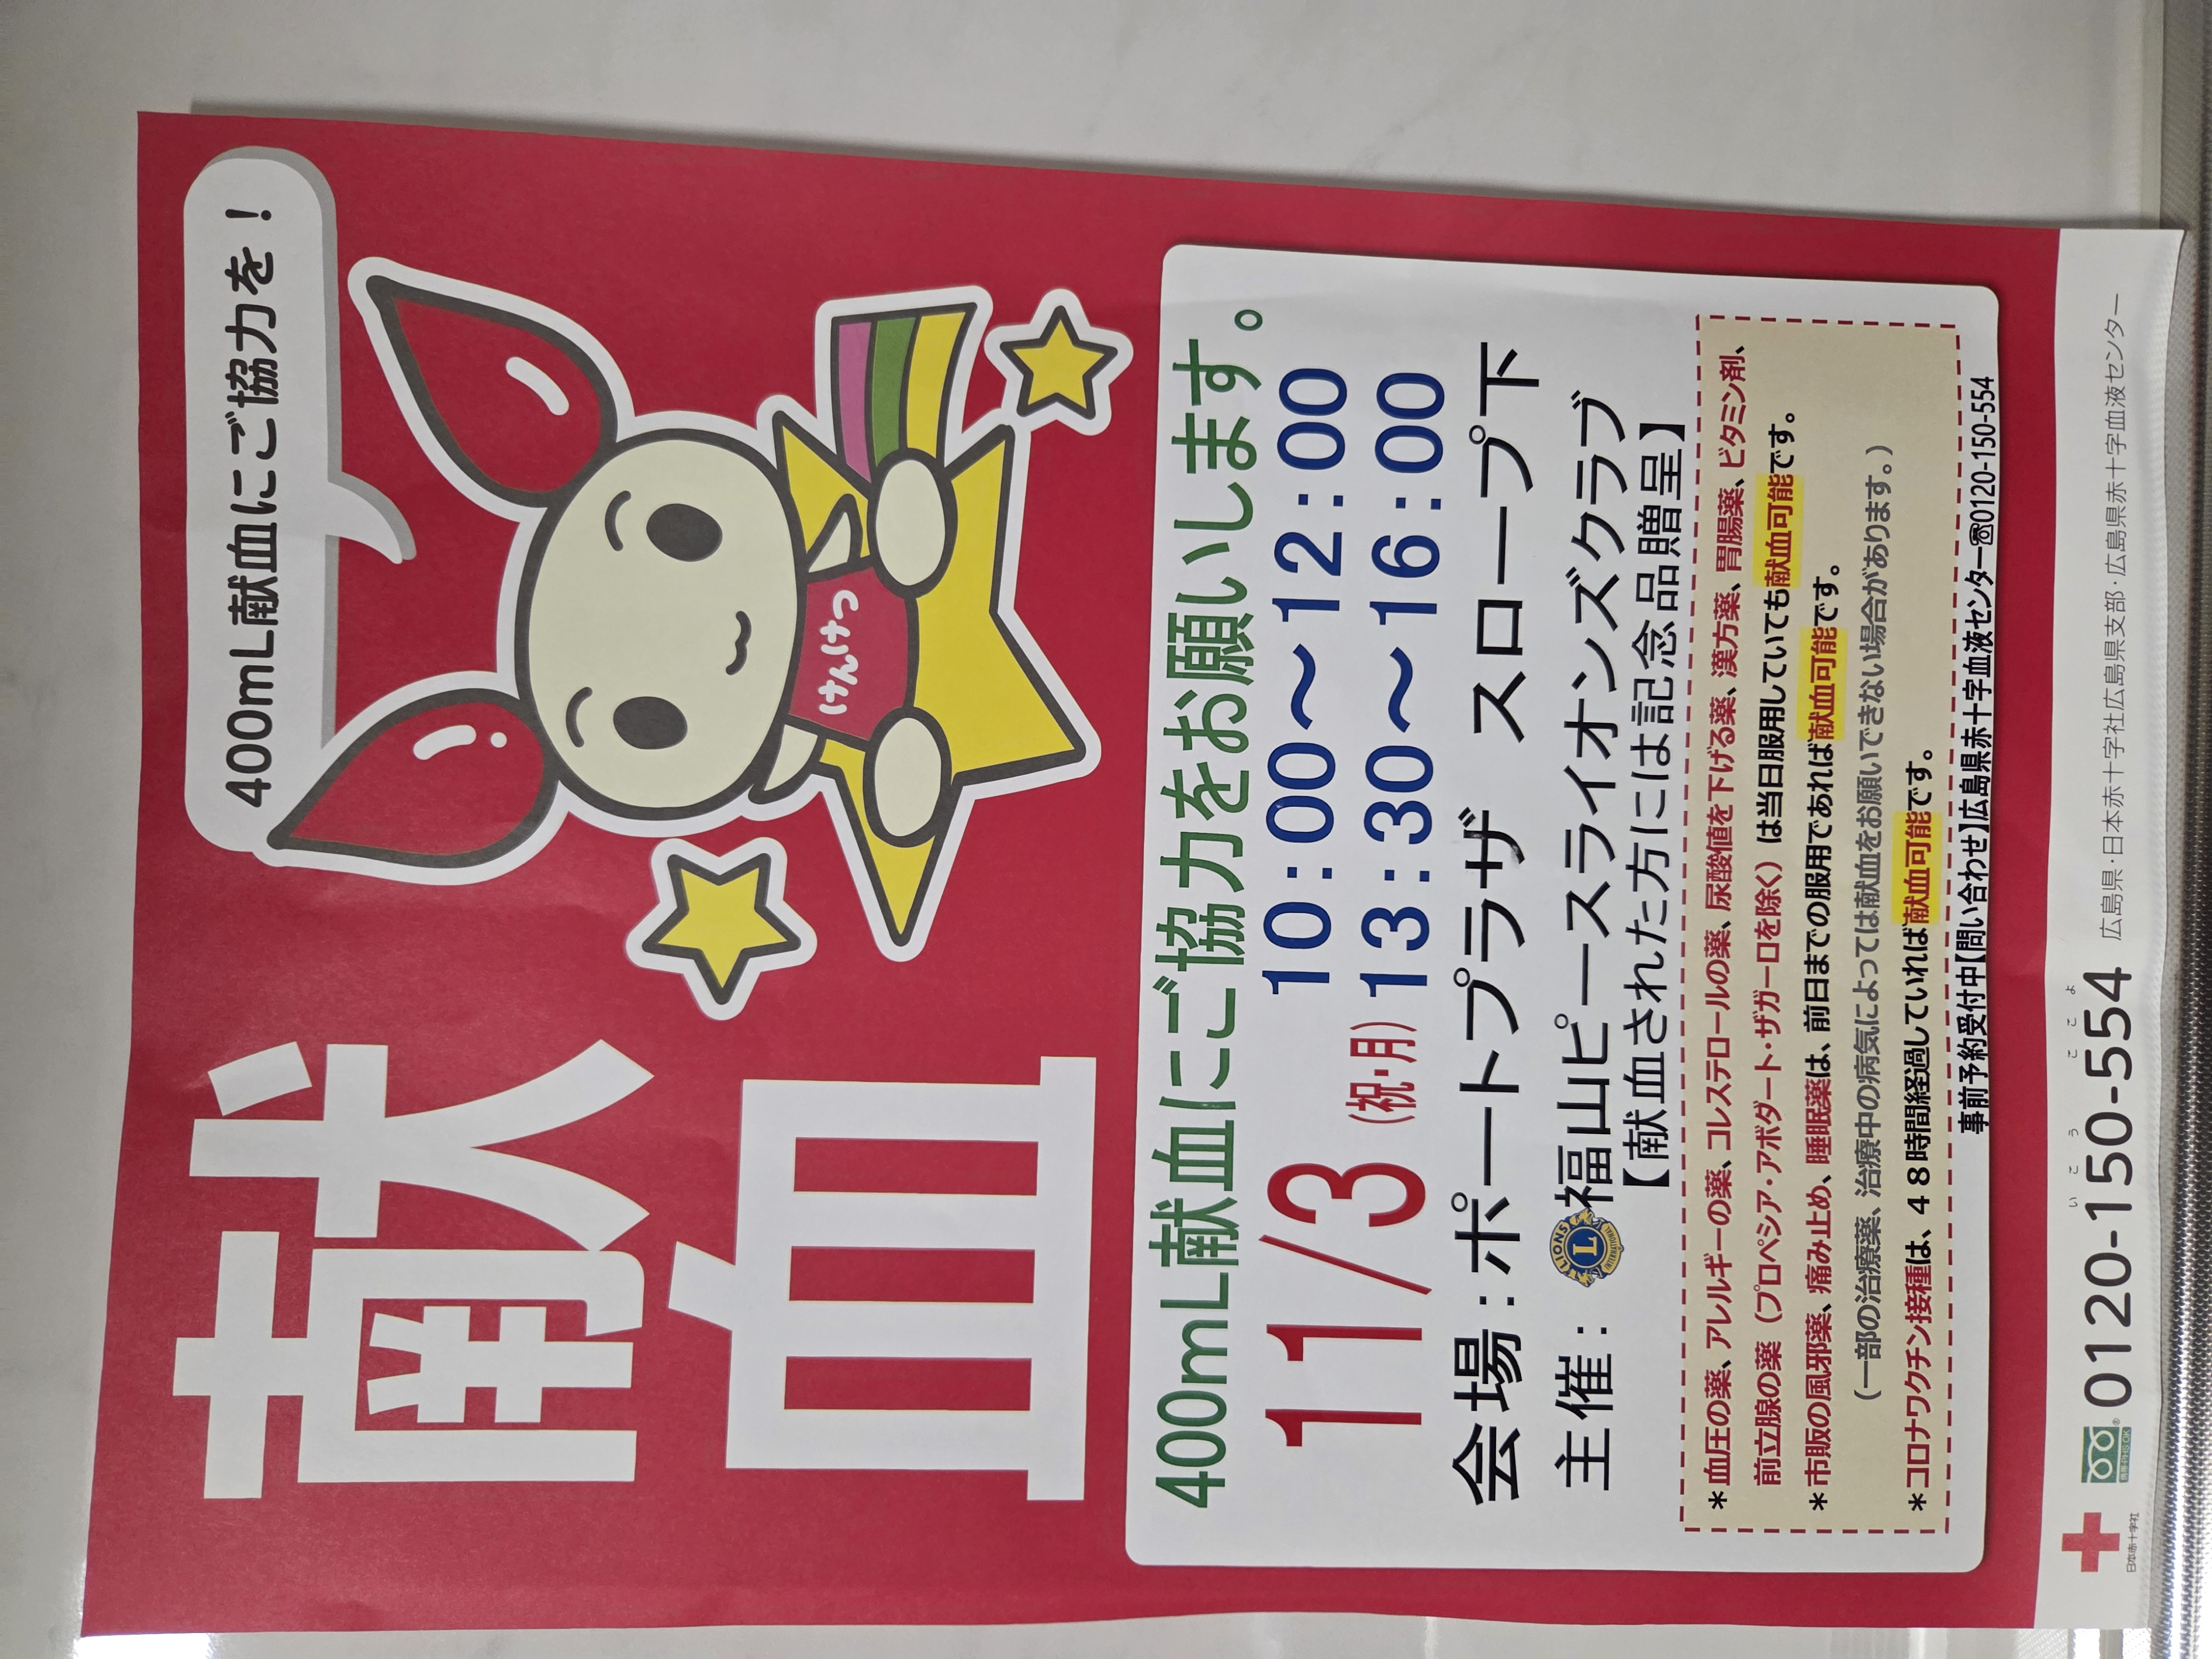 献血
400mL献血にご協力を！
けんけつ
400mL献血にご協力をお願いします。
11/3（祝・月）
10：00〜12：00
13：30〜16：00
会場：ポートプラザ　スロープ下
主催：福山ピースライオンズクラブ
LIONS
L
INTERNATIONAL
【献血された方には記念品贈呈】
＊血圧の薬、アレルギーの薬、コレステロールの薬、尿酸値を下げる薬、漢方薬、胃腸薬、ビタミン剤、
前立腺の薬（プロペシア・アボダート・ザガーロを除く）は当日服用していても献血可能です。
＊市販の風邪薬、痛み止め、睡眠薬は、前日までの服用であれば献血可能です。
（一部の治療薬、治療中の病気によっては献血をお願いできない場合があります。）
＊コロナワクチン接種は、４８時間経過していれば献血可能です。
事前予約受付中【問い合わせ】広島県赤十字血液センター☎0120-150-554
日本赤十字社
いこう ここよ
0120-150-554
広島県・日本赤十字社広島県支部・広島県赤十字血液センター